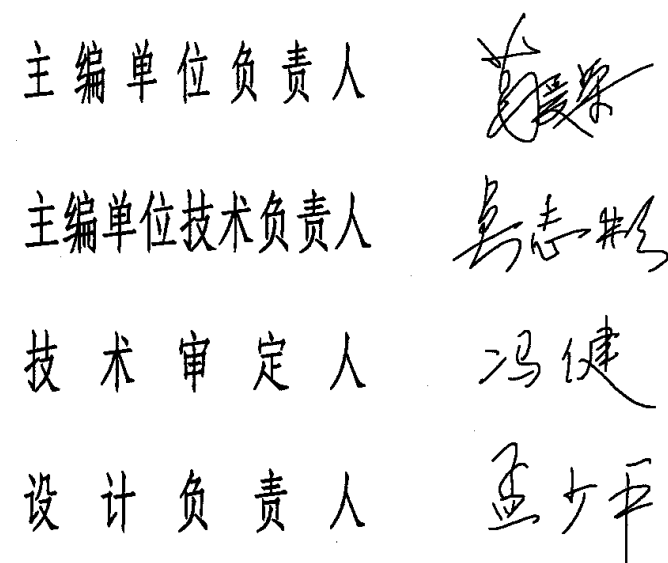 主编单位负责人
主编单位技术负责人 吴志彬
技术审定人 冯健
设计负责人 孟少平